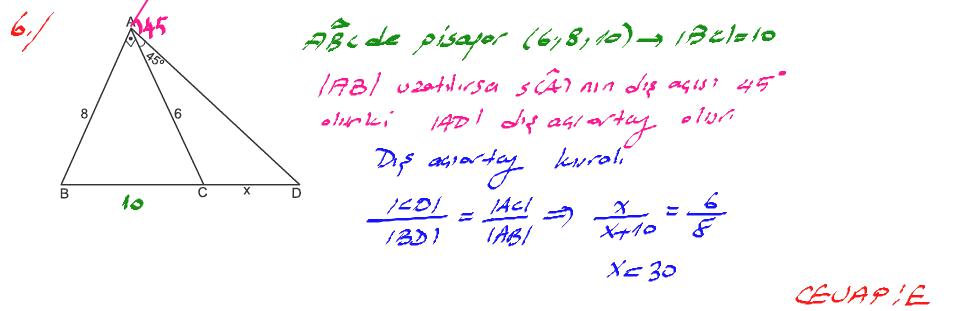 6./
A 45
45°
8
6
B C x D
10
ABC de pisagor (6,8,10) → |BC|=10
|AB| uzatılırsa s(Â) nın dış açısı 45°
olurki |AD| dış açıortay olur.
Dış açıortay kuralı
|CD| / |BD| = |AC| / |AB| ⇒ x / x+10 = 6 / 8
x=30
CEVAP:E